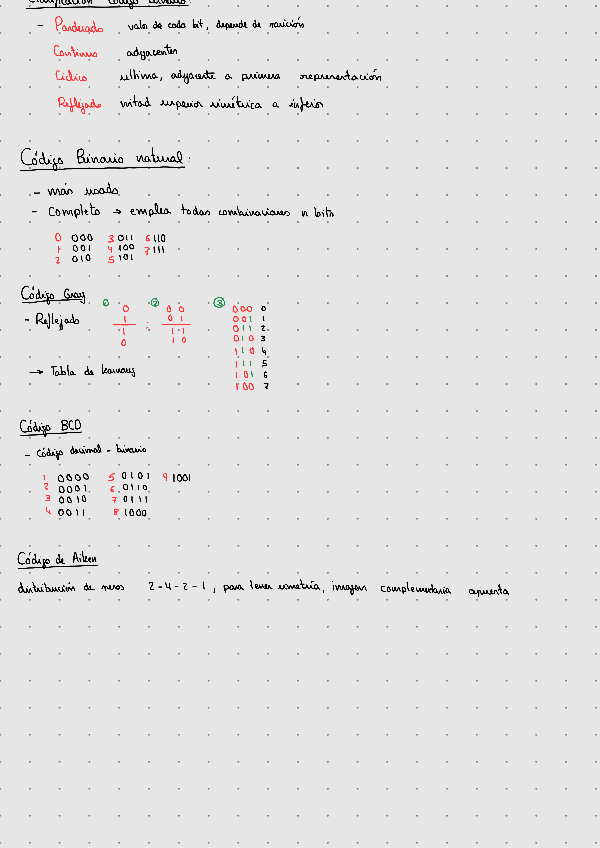 Clasificación Código Binario:
- Ponderado valor de cada bit, depende de posición
Continuo adyacentes
Cíclico última, adyacente a primera representación
Reflejado mitad superior simétrica a inferior
Código Binario natural:
- más usado
- Completo → emplea todas combinaciones n bits
0 000 3 011 6 110
1 001 4 100 7 111
2 010 5 101
Código Gray
- Reflejado
① ② ③
0 00 000 0
1 01 001 1
1 11 011 2
0 10 010 3
110 4
111 5
101 6
100 7
→ Tabla de
Código BCD
- Código decimal - binario
1 0000 5 0101 9 1001
2 0001 6 0110
3 0010 7 0111
4 0011 8 1000
Código de Aiken
distribución de pesos 2-4-2-1, para tener simetría, imagen complementaria opuesta